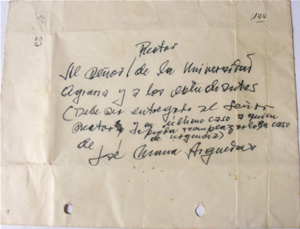 144
Rector
Al señor / de la Universidad
Agraria y a los estudiantes
(Debe ser entregado al señor
Rector y en último caso a quien
pueda reemplazarlo en caso
de urgencia)
de José María Arguedas